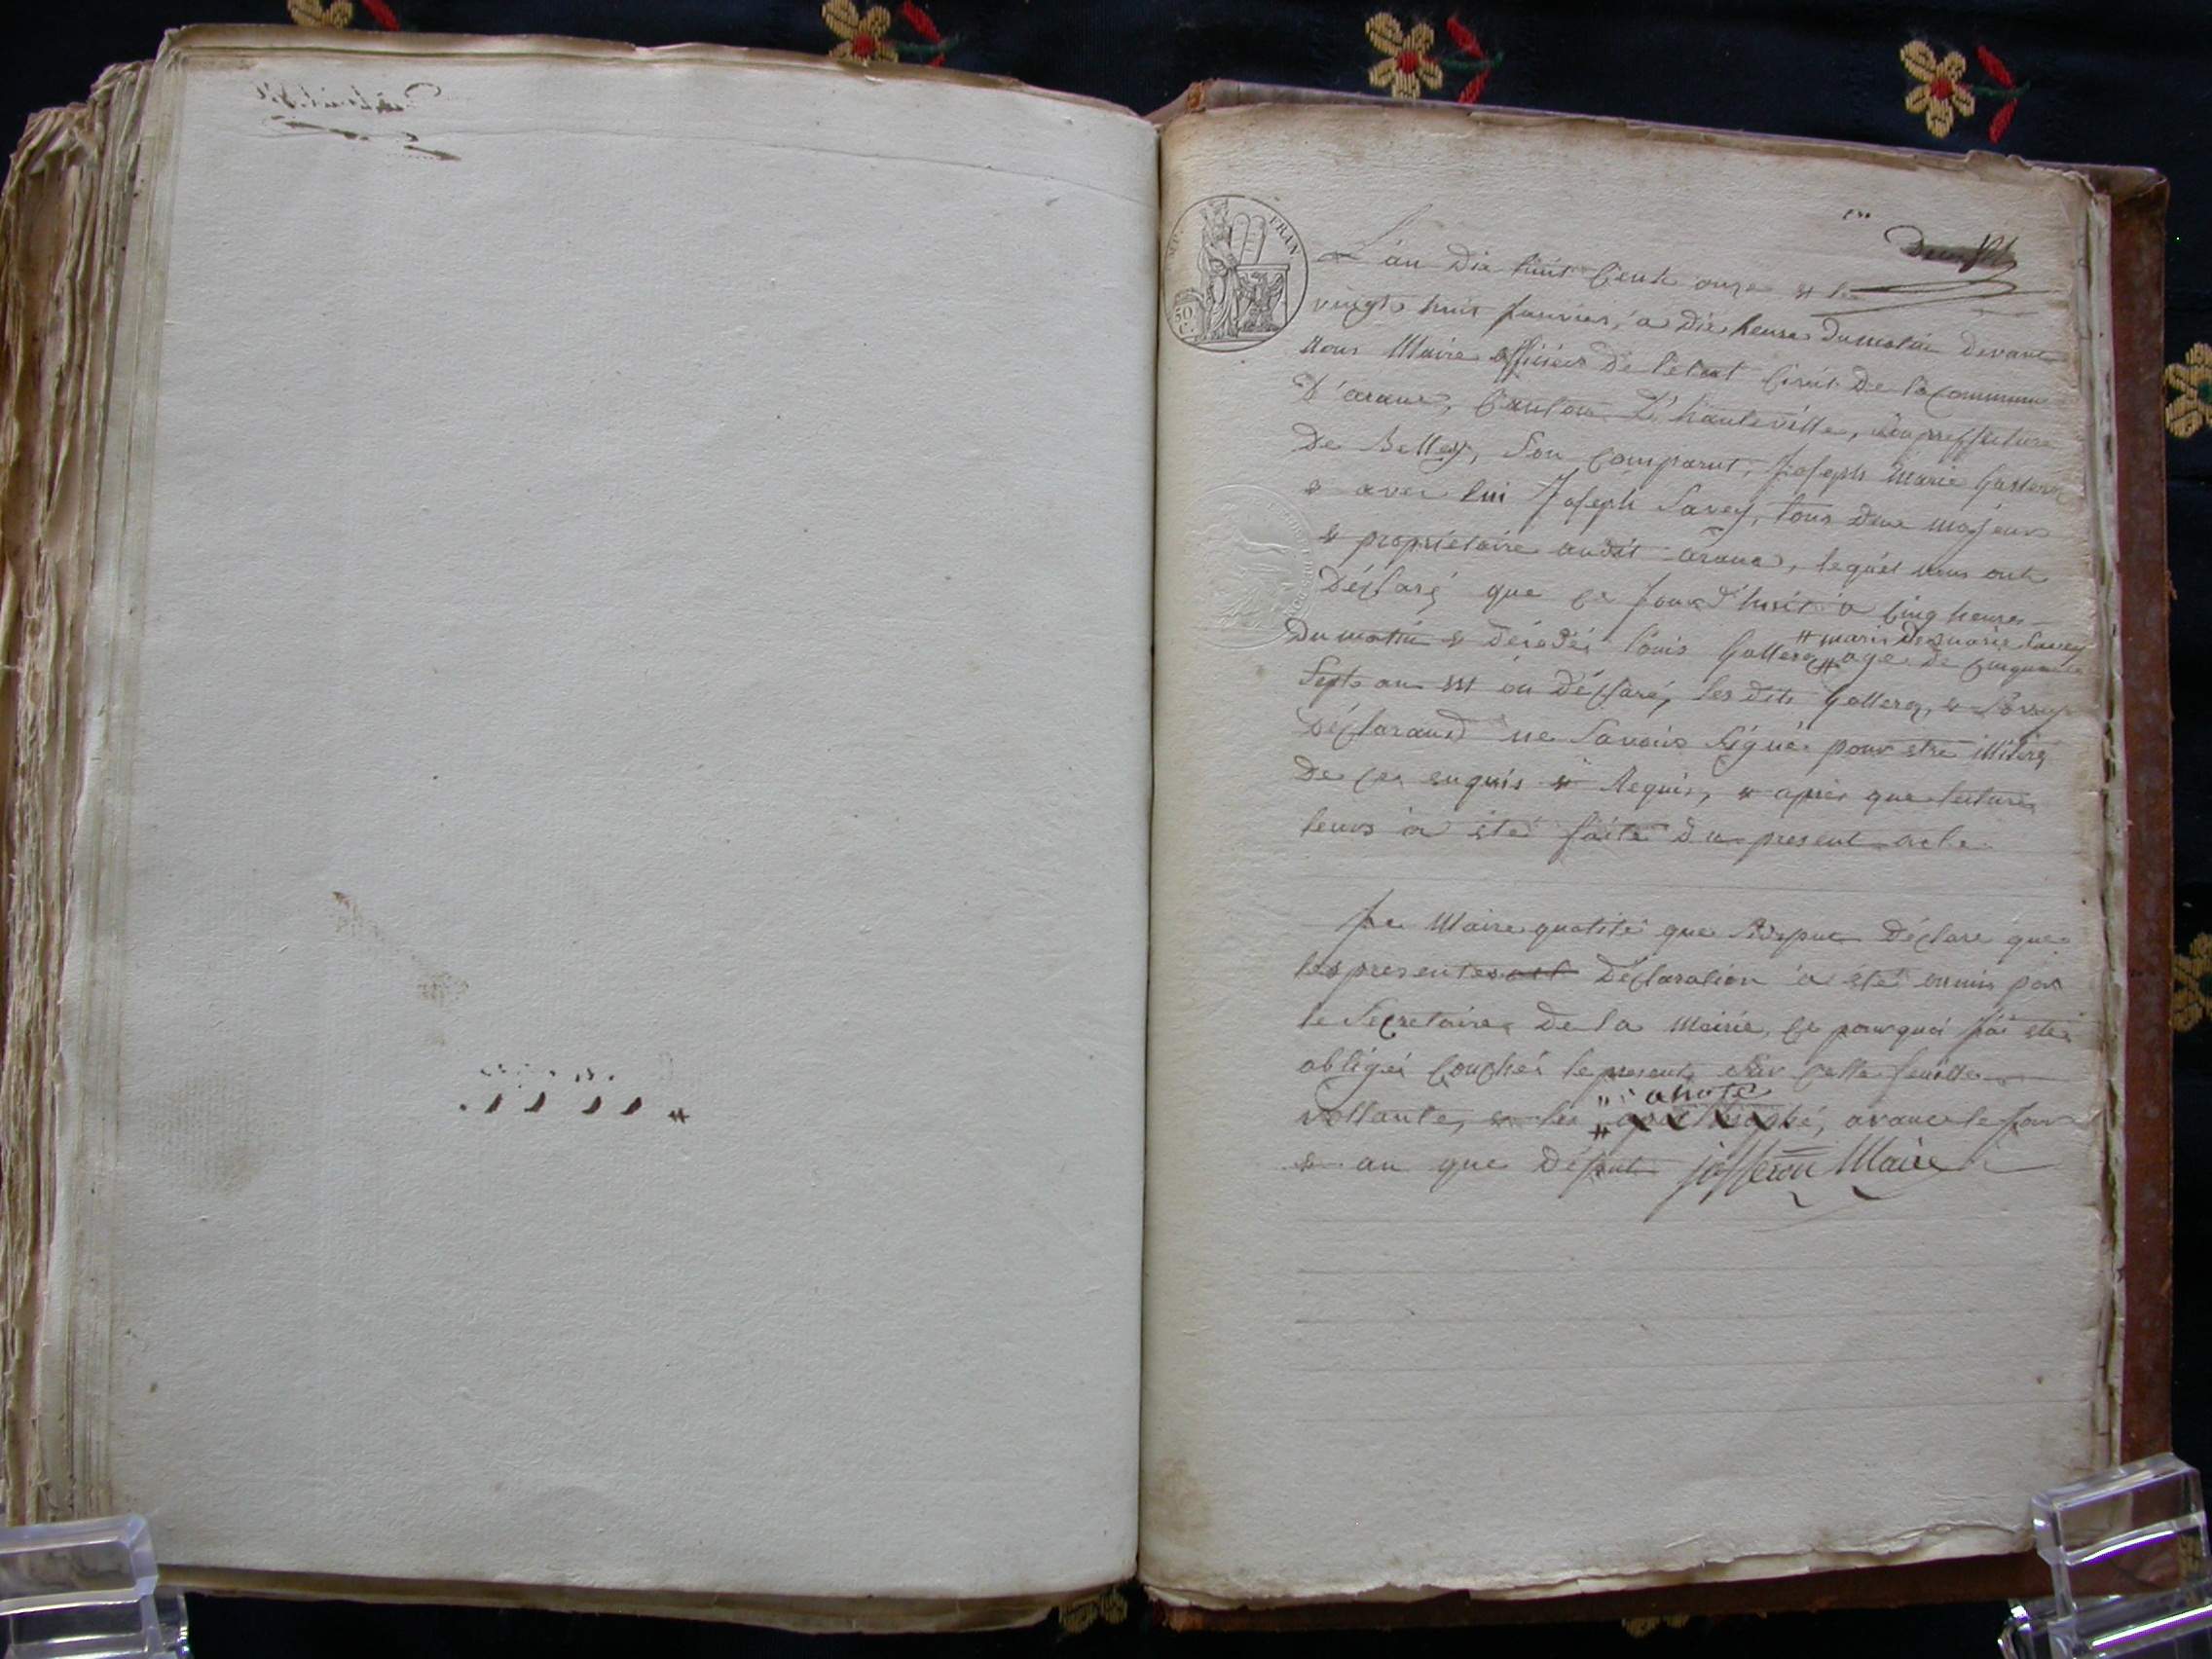 FRAN
50 C.
L'an dix huit cent onze & le
vingt huit janvier, a dix heures du matin devant
nous Maire officier de l'etat civil de la commune
d'aranc, canton d'hauteville, souspreffecture
de Belley, son comparut, Joseph Marie Gallera
& avec lui Joseph Savey, tous deux majeur
& propriétaire audit aranc, lequel nous onts
déclaré que ce jourd'huit a cinq heures
# maris de marie Savey
du matin & décédé louis Gallera # age de cinquante
Sept an déclaré, les dits Gallera, & Savey
déclarand ne Savoir Signé pour etre illitéré
de ce enquis & Requis, & apres que lecture
leurs a été faite du present acte
Le Maire qualité que déclare que
les presentes declaration a été ommis par
le Secretaire de la Mairie, ce pourquoi j'ai été
obligé couché le present sur cette feuille
vollante, avant le jour
& an que joffferon Maire